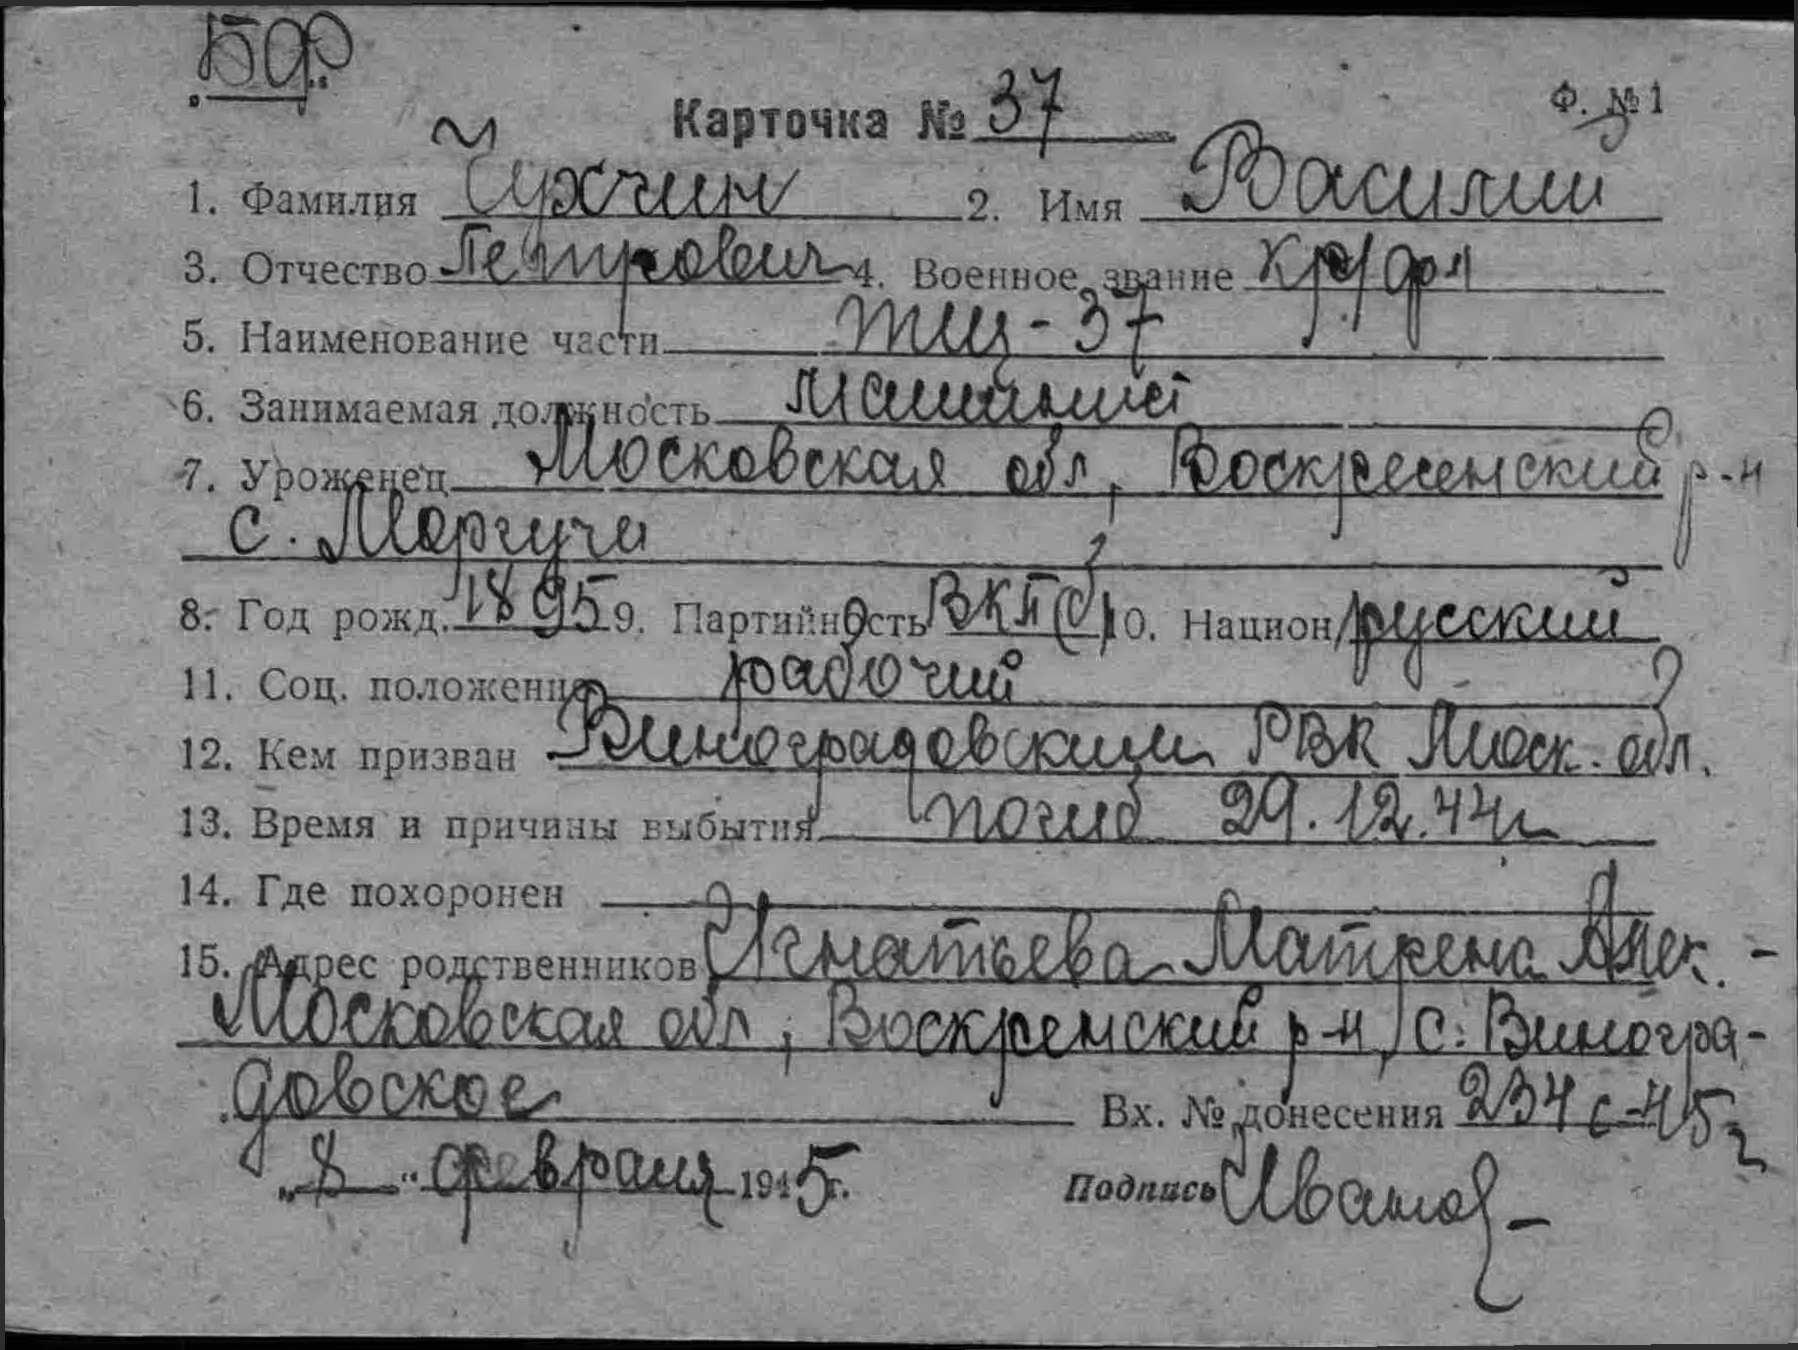 БФ
Карточка № 37
Ф. № 1
1. Фамилия Чухчин 2. Имя Василий
3. Отчество Петрович 4. Военное звание кр/фл
5. Наименование части ТЩ-37
6. Занимаемая должность машинист
7. Уроженец Московская обл, Воскресенский р-н
с. Маргучи
8. Год рожд. 1895 9. Партийность ВКП(б) 10. Национ. русский
11. Соц. положение рабочий
12. Кем призван Виноградовским РВК Моск. обл.
13. Время и причины выбытия погиб 29.12.44г
14. Где похоронен
15. Адрес родственников Игнатьева Матрена Алек. -
Московская обл, Воскремский р-н, с. Виногра-
довское Вх. № донесения 234с-45г
"8" февраля 1945г. Подпись Иванов